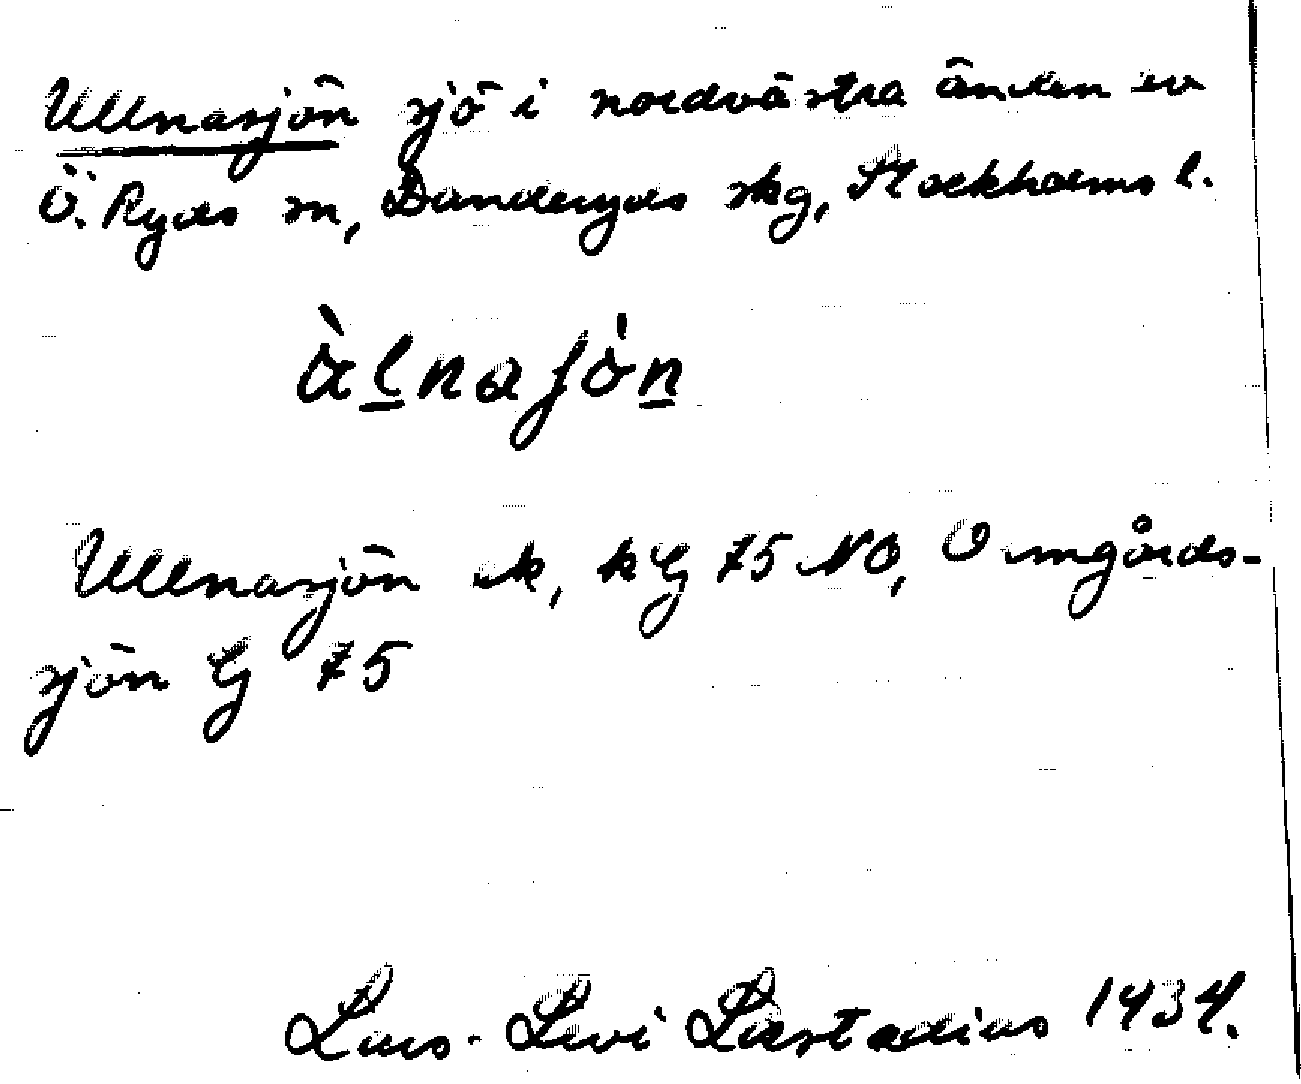 Ullnasjön sjö i nordvästra änden av
Ö. Ryds sn, Danderyds skg, Stockholms l.
àl̲najö̀n̲
Ullnasjön sk, kG 75 NO, Ormgårds-
sjön G 75
Lars-Levi Læstadius 1934.